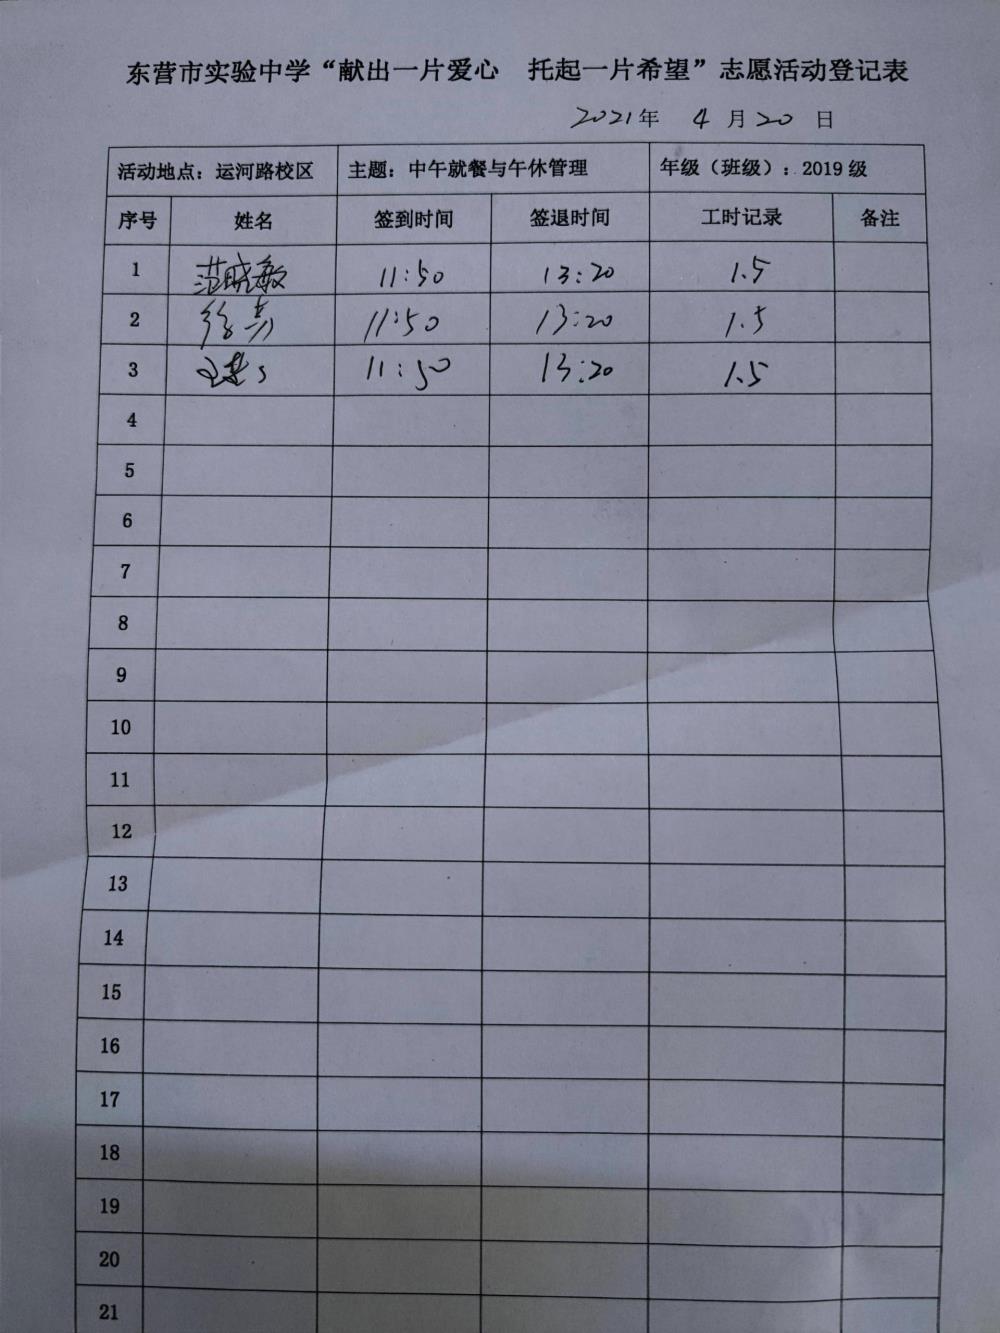 东营市实验中学“献出一片爱心　托起一片希望”志愿活动登记表
2021年 4 月 20 日
活动地点：运河路校区 主题：中午就餐与午休管理 年级（班级）：2019 级
序号 姓名 签到时间 签退时间 工时记录 备注
1 范晓敏 11:50 13:20 1.5
2 11:50 13:20 1.5
3 11:50 13:20 1.5
4
5
6
7
8
9
10
11
12
13
14
15
16
17
18
19
20
21